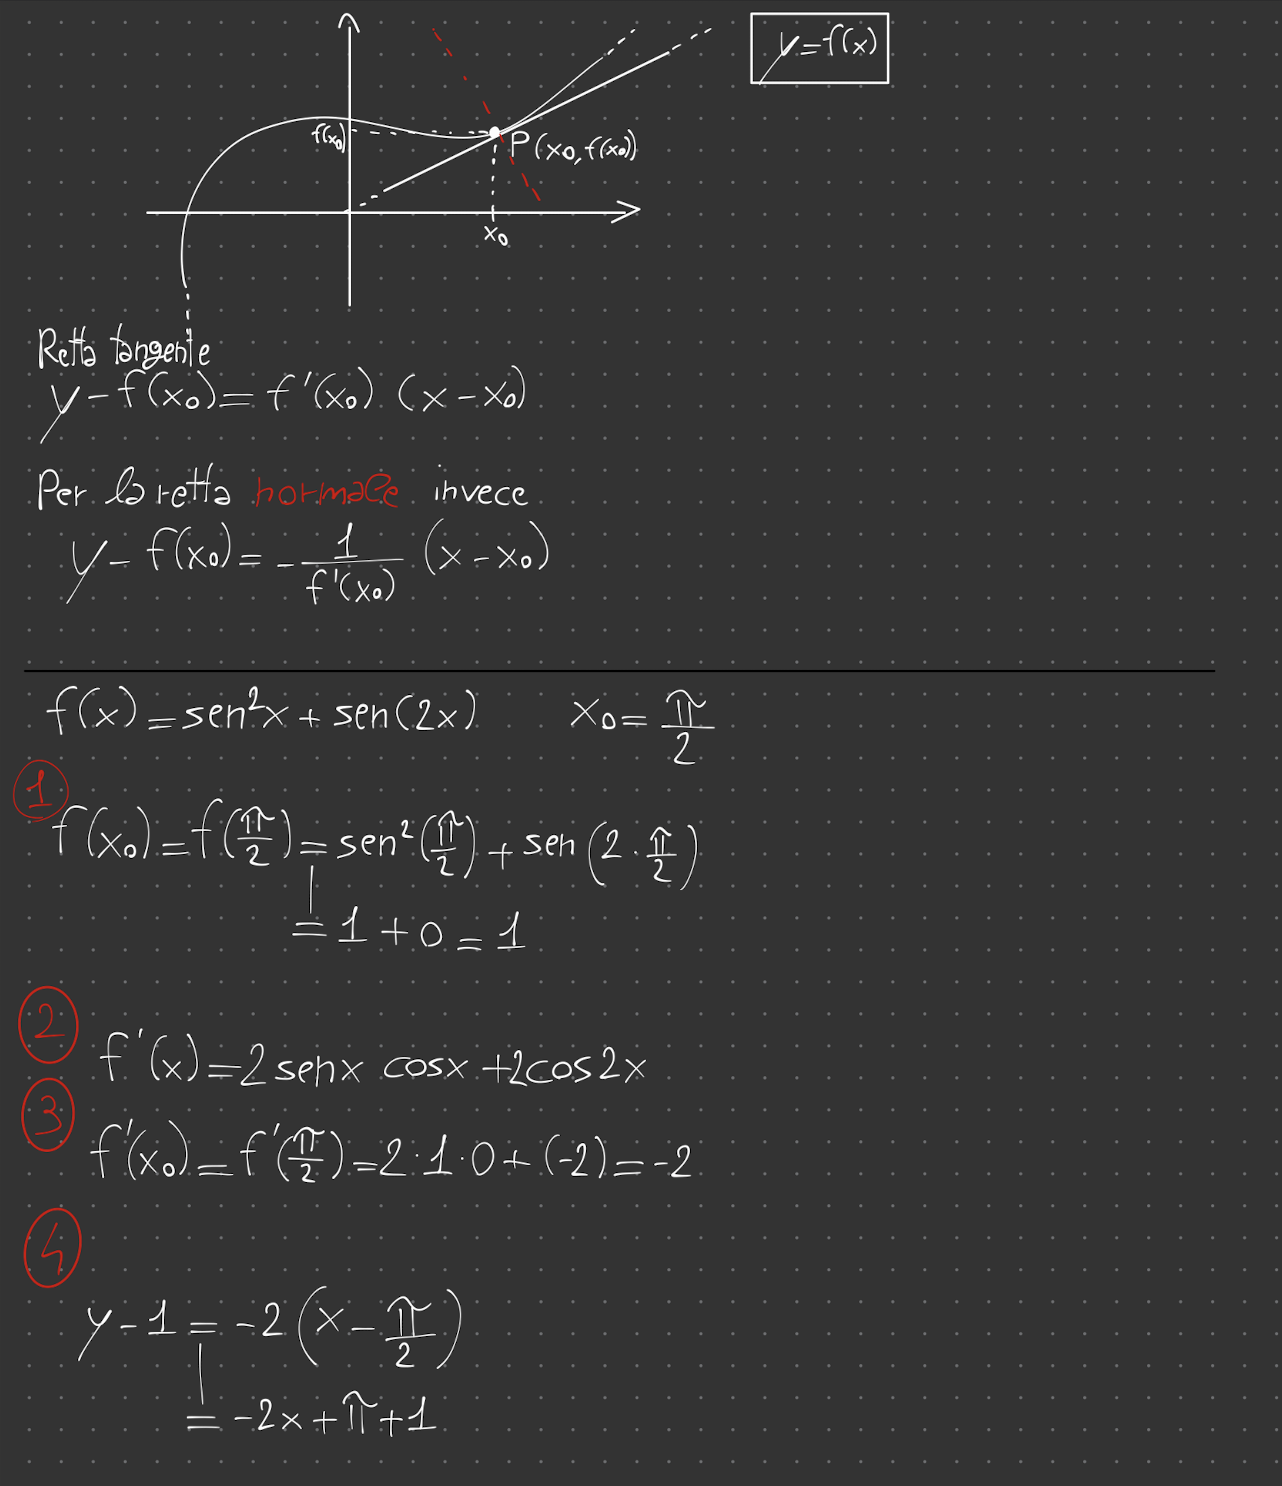 y=f(x)
f(x₀)
P(x₀, f(x₀))
x₀
Retta tangente
y-f(x₀)=f'(x₀) (x-x₀)
Per la retta normale invece
y-f(x₀)=-1/f'(x₀) (x-x₀)
f(x)=sen²x+sen(2x) x₀=π/2
1
f(x₀)=f(π/2)=sen²(π/2)+sen(2·π/2)
=1+0=1
2
f'(x)=2senx cosx+2cos2x
3
f'(x₀)=f'(π/2)=2·1·0+(-2)=-2
4
y-1=-2(x-π/2)
=-2x+π+1